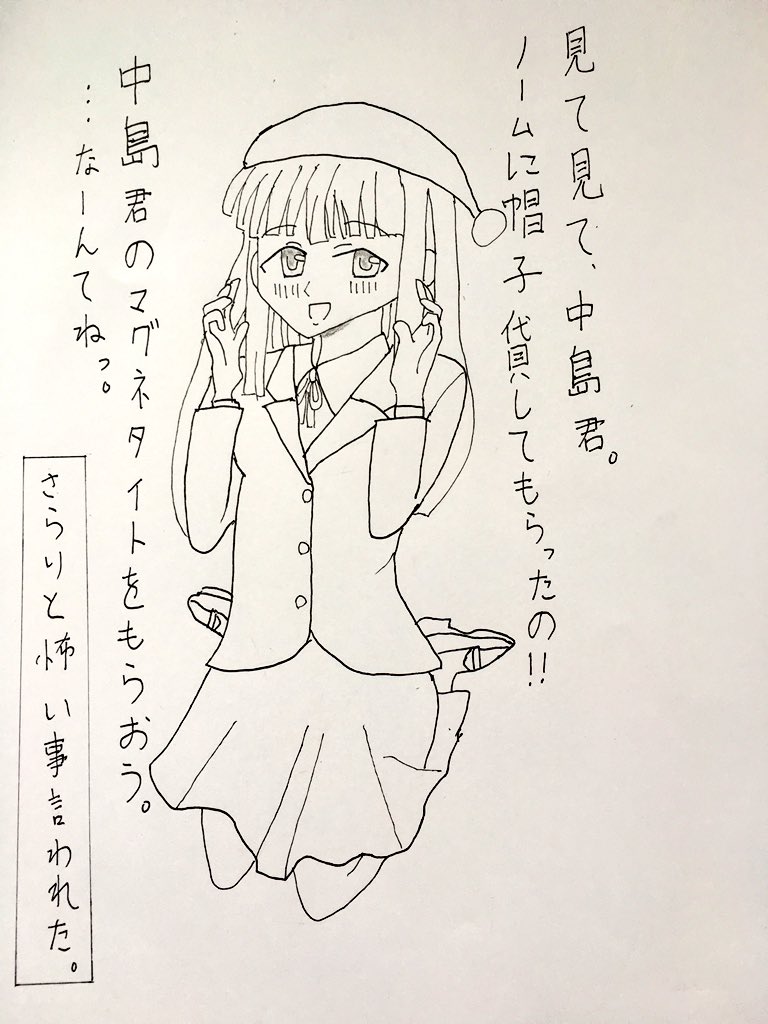 見て見て、中島君。
ノームに帽子貸してもらったの!!
中島君のマグネタイトをもらおう。
…なーんてねっ。
さらりと怖い事言われた。